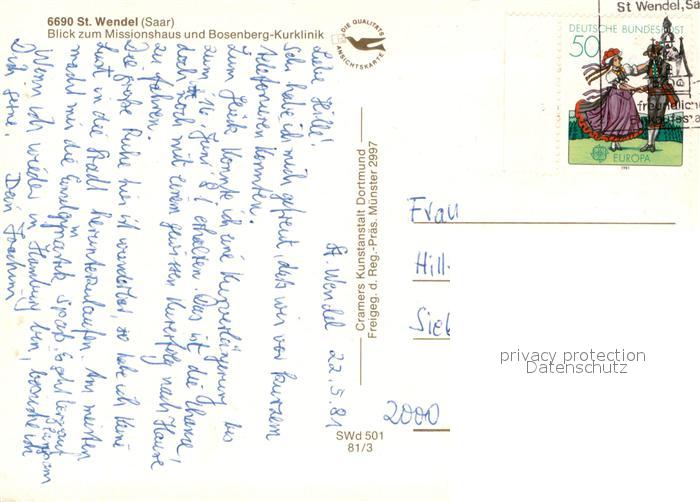 6690 St. Wendel (Saar)
Blick zum Missionshaus und Bosenberg-Kurklinik
DIE QUALITÄTS
ANSICHTSKARTE
St. Wendel 22.5.81
Liebe Hilla!
Sehr habe ich mich gefreut, daß wir vor kurzem
telefonieren konnten.
Zum Glück konnte ich eine Kurverlängerung bis
zum 16. Juni 81 erhalten. Das ist die Chance,
doch noch mit einem gewissen Kurerfolg nach Hause
zu fahren.
Die große Ruhe hier ist wunderbar, so habe ich keine
Lust in die Stadt herunterzulaufen. Am meisten
macht mir die Einzelgymnastik Spaß.
Wenn ich wieder in Hamburg bin, besuche ich
Dich gerne. Dein Joachim
Cramers Kunstanstalt Dortmund
Freigeg. d. Reg.-Präs. Münster 2997
SWd 501
81/3
St Wendel, Sa
DEUTSCHE BUNDESPOST
50
EUROPA
1981
freundliche
Frau
Hill
Sie
2000
privacy protection
Datenschutz